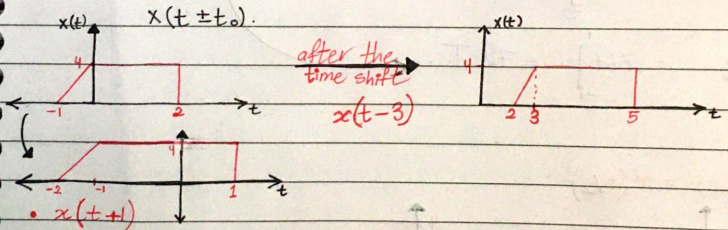 x(t ± t₀).
x(t)
4
-1 2 t
after the
time shift
x(t-3)
x(t)
4
2 3 5 t
4
-2 -1 1 t
• x(t+1)